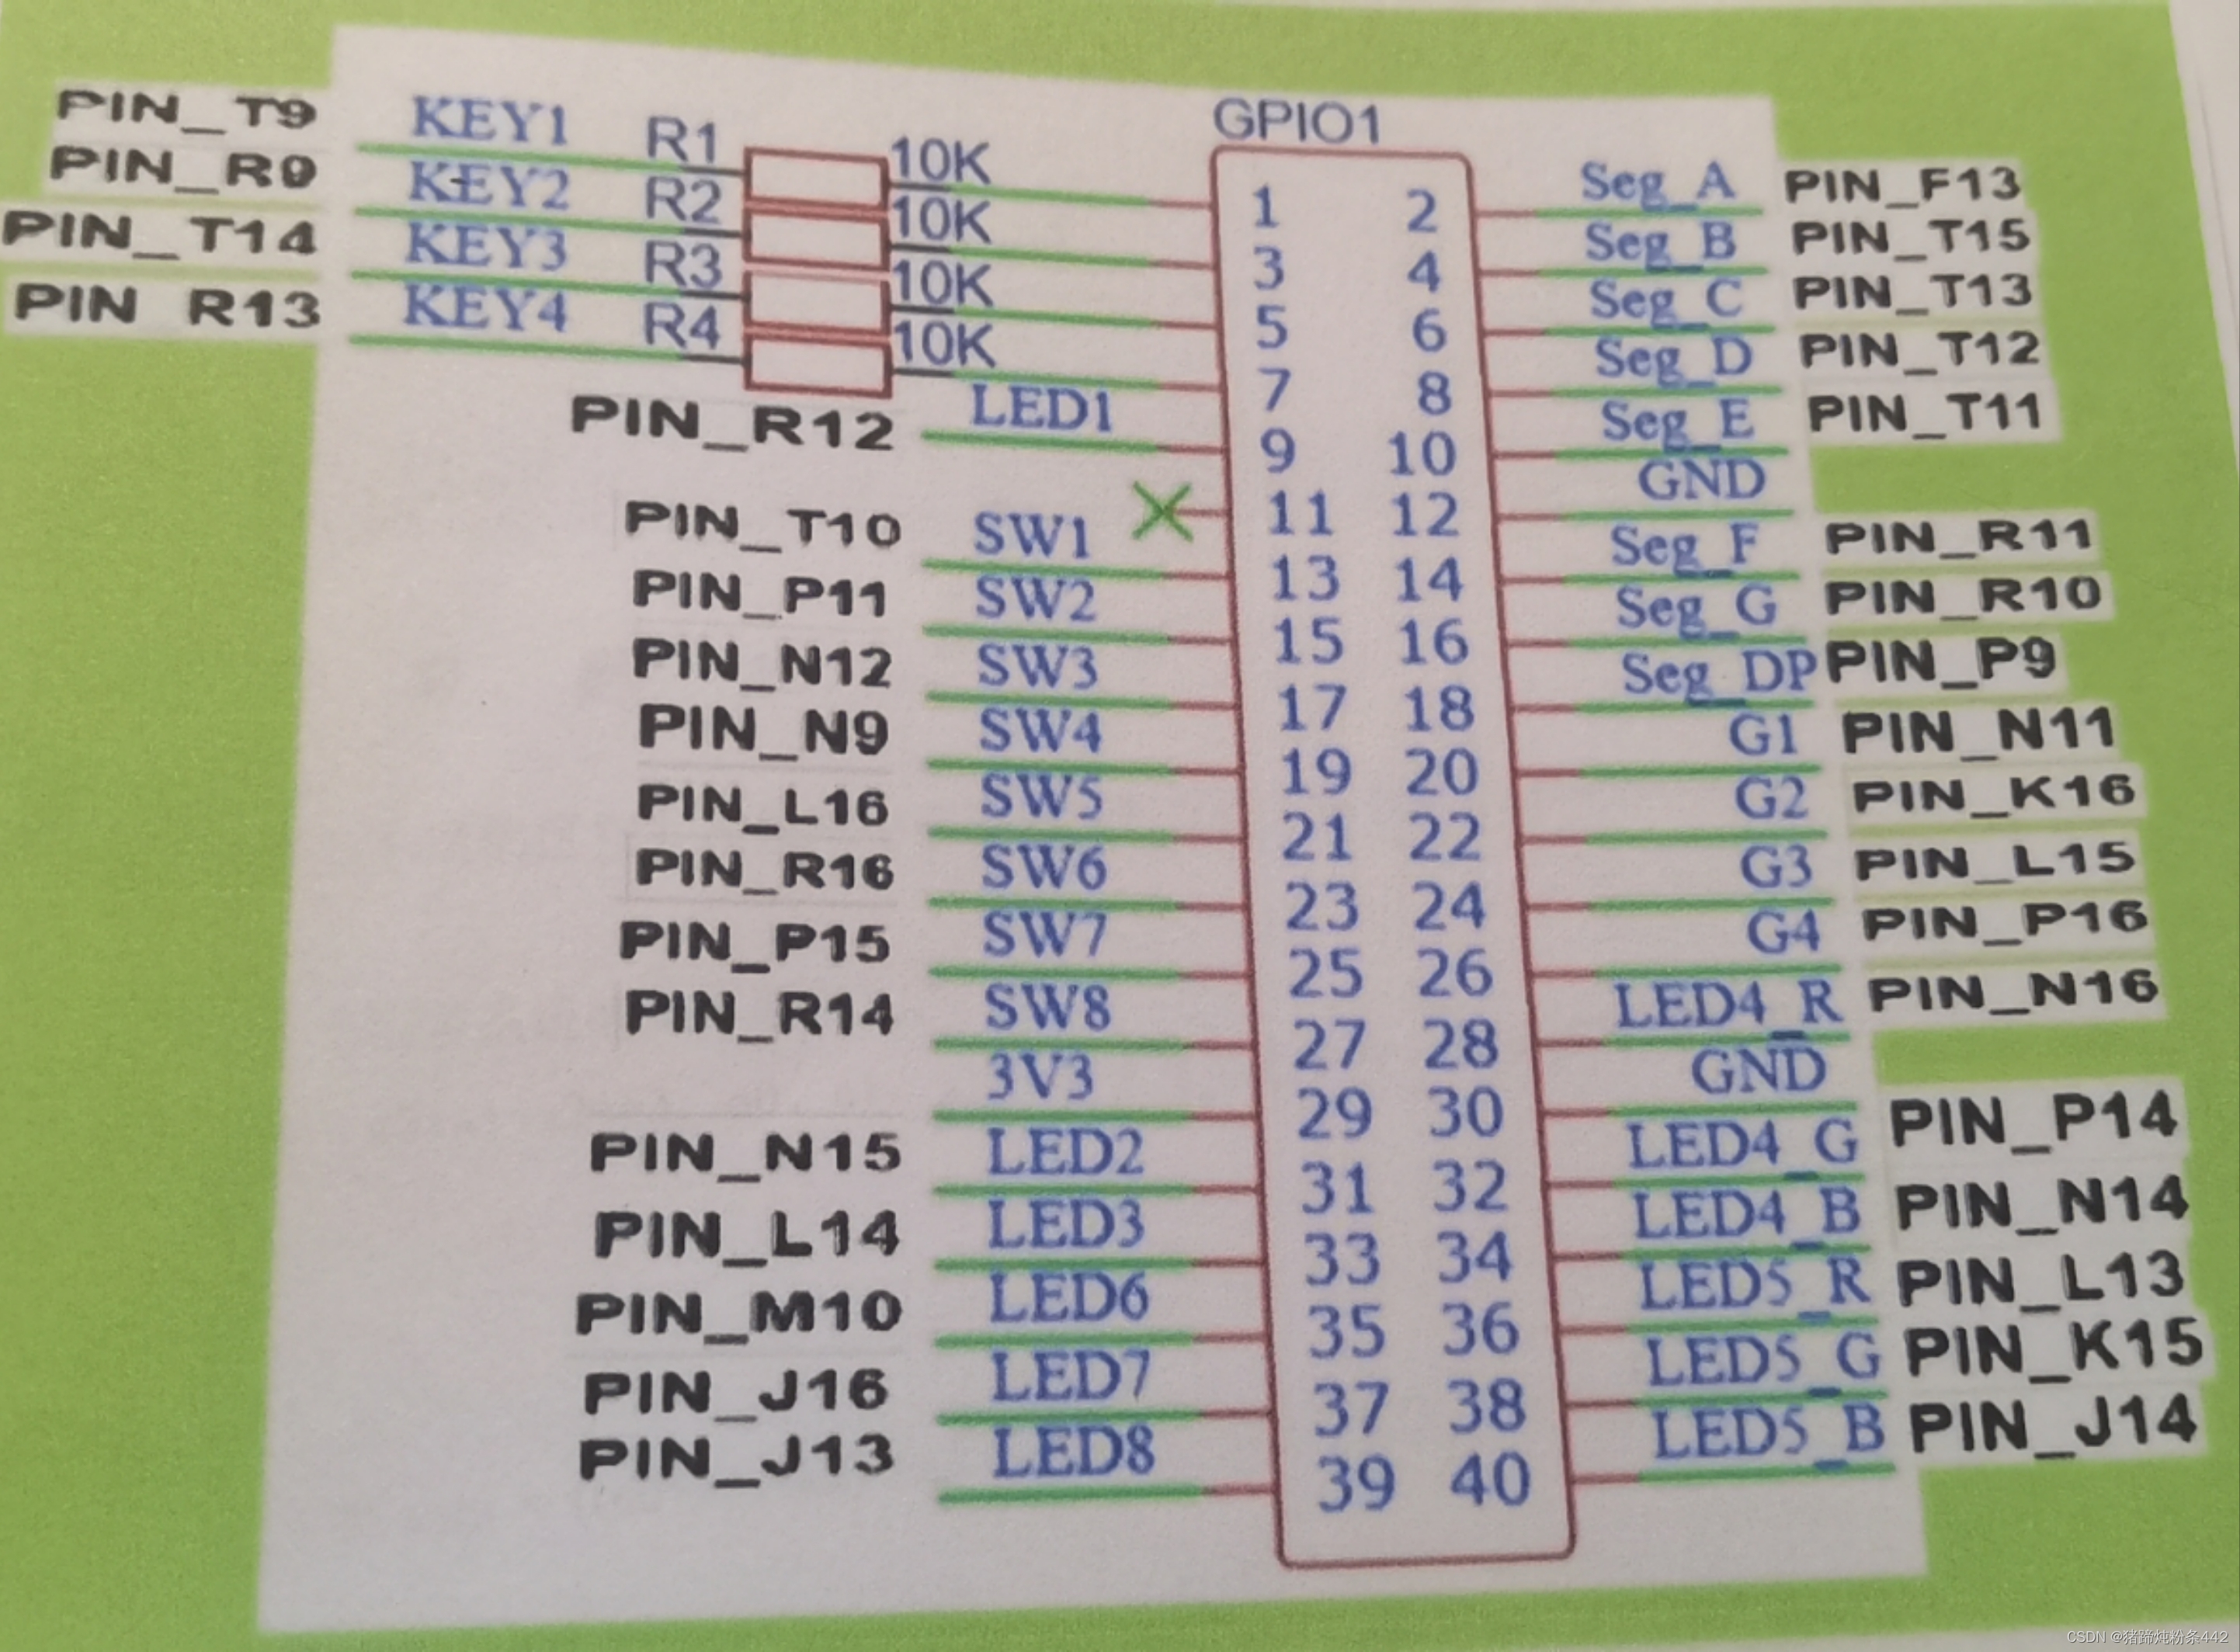 GPIO1
PIN_T9 KEY1 R1 10K 1 2 Seg_A PIN_F13
PIN_R9 KEY2 R2 10K 3 4 Seg_B PIN_T15
PIN_T14 KEY3 R3 10K 5 6 Seg_C PIN_T13
PIN R13 KEY4 R4 10K 7 8 Seg_D PIN_T12
PIN_R12 LED1 9 10 Seg_E PIN_T11
11 12 GND
PIN_T10 SW1 13 14 Seg_F PIN_R11
PIN_P11 SW2 15 16 Seg_G PIN_R10
PIN_N12 SW3 17 18 Seg_DP PIN_P9
PIN_N9 SW4 19 20 G1 PIN_N11
PIN_L16 SW5 21 22 G2 PIN_K16
PIN_R16 SW6 23 24 G3 PIN_L15
PIN_P15 SW7 25 26 G4 PIN_P16
PIN_R14 SW8 27 28 LED4_R PIN_N16
3V3 29 30 GND
PIN_N15 LED2 31 32 LED4_G PIN_P14
PIN_L14 LED3 33 34 LED4_B PIN_N14
PIN_M10 LED6 35 36 LED5_R PIN_L13
PIN_J16 LED7 37 38 LED5_G PIN_K15
PIN_J13 LED8 39 40 LED5_B PIN_J14
CSDN @猪蹄炖粉条442